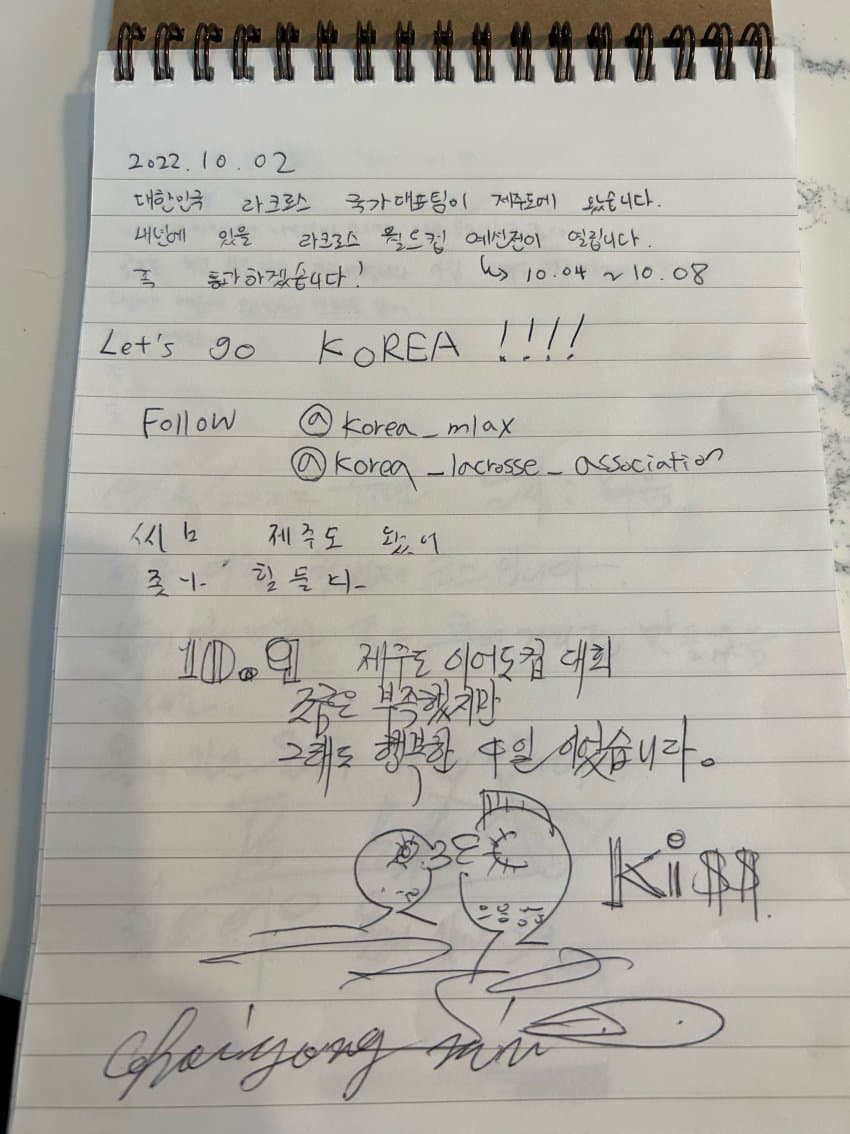 2022.10.02
대한민국 라크로스 국가대표팀이 제주도에 왔습니다.
내년에 있을 라크로스 월드컵 예선전이 열립니다.
꼭 통과하겠습니다! ↳ 10.04 ~ 10.08
Let's go KOREA !!!!
Follow @korea_mlax
@korea_lacrosse_association
씨브 제주도 왔어
좃나 힐들다
10.9일 제주도 이어도컵 대회
조금은 부족했지만
그래도 행복한 4일 이었습니다.
Ki$$
Choi yong min